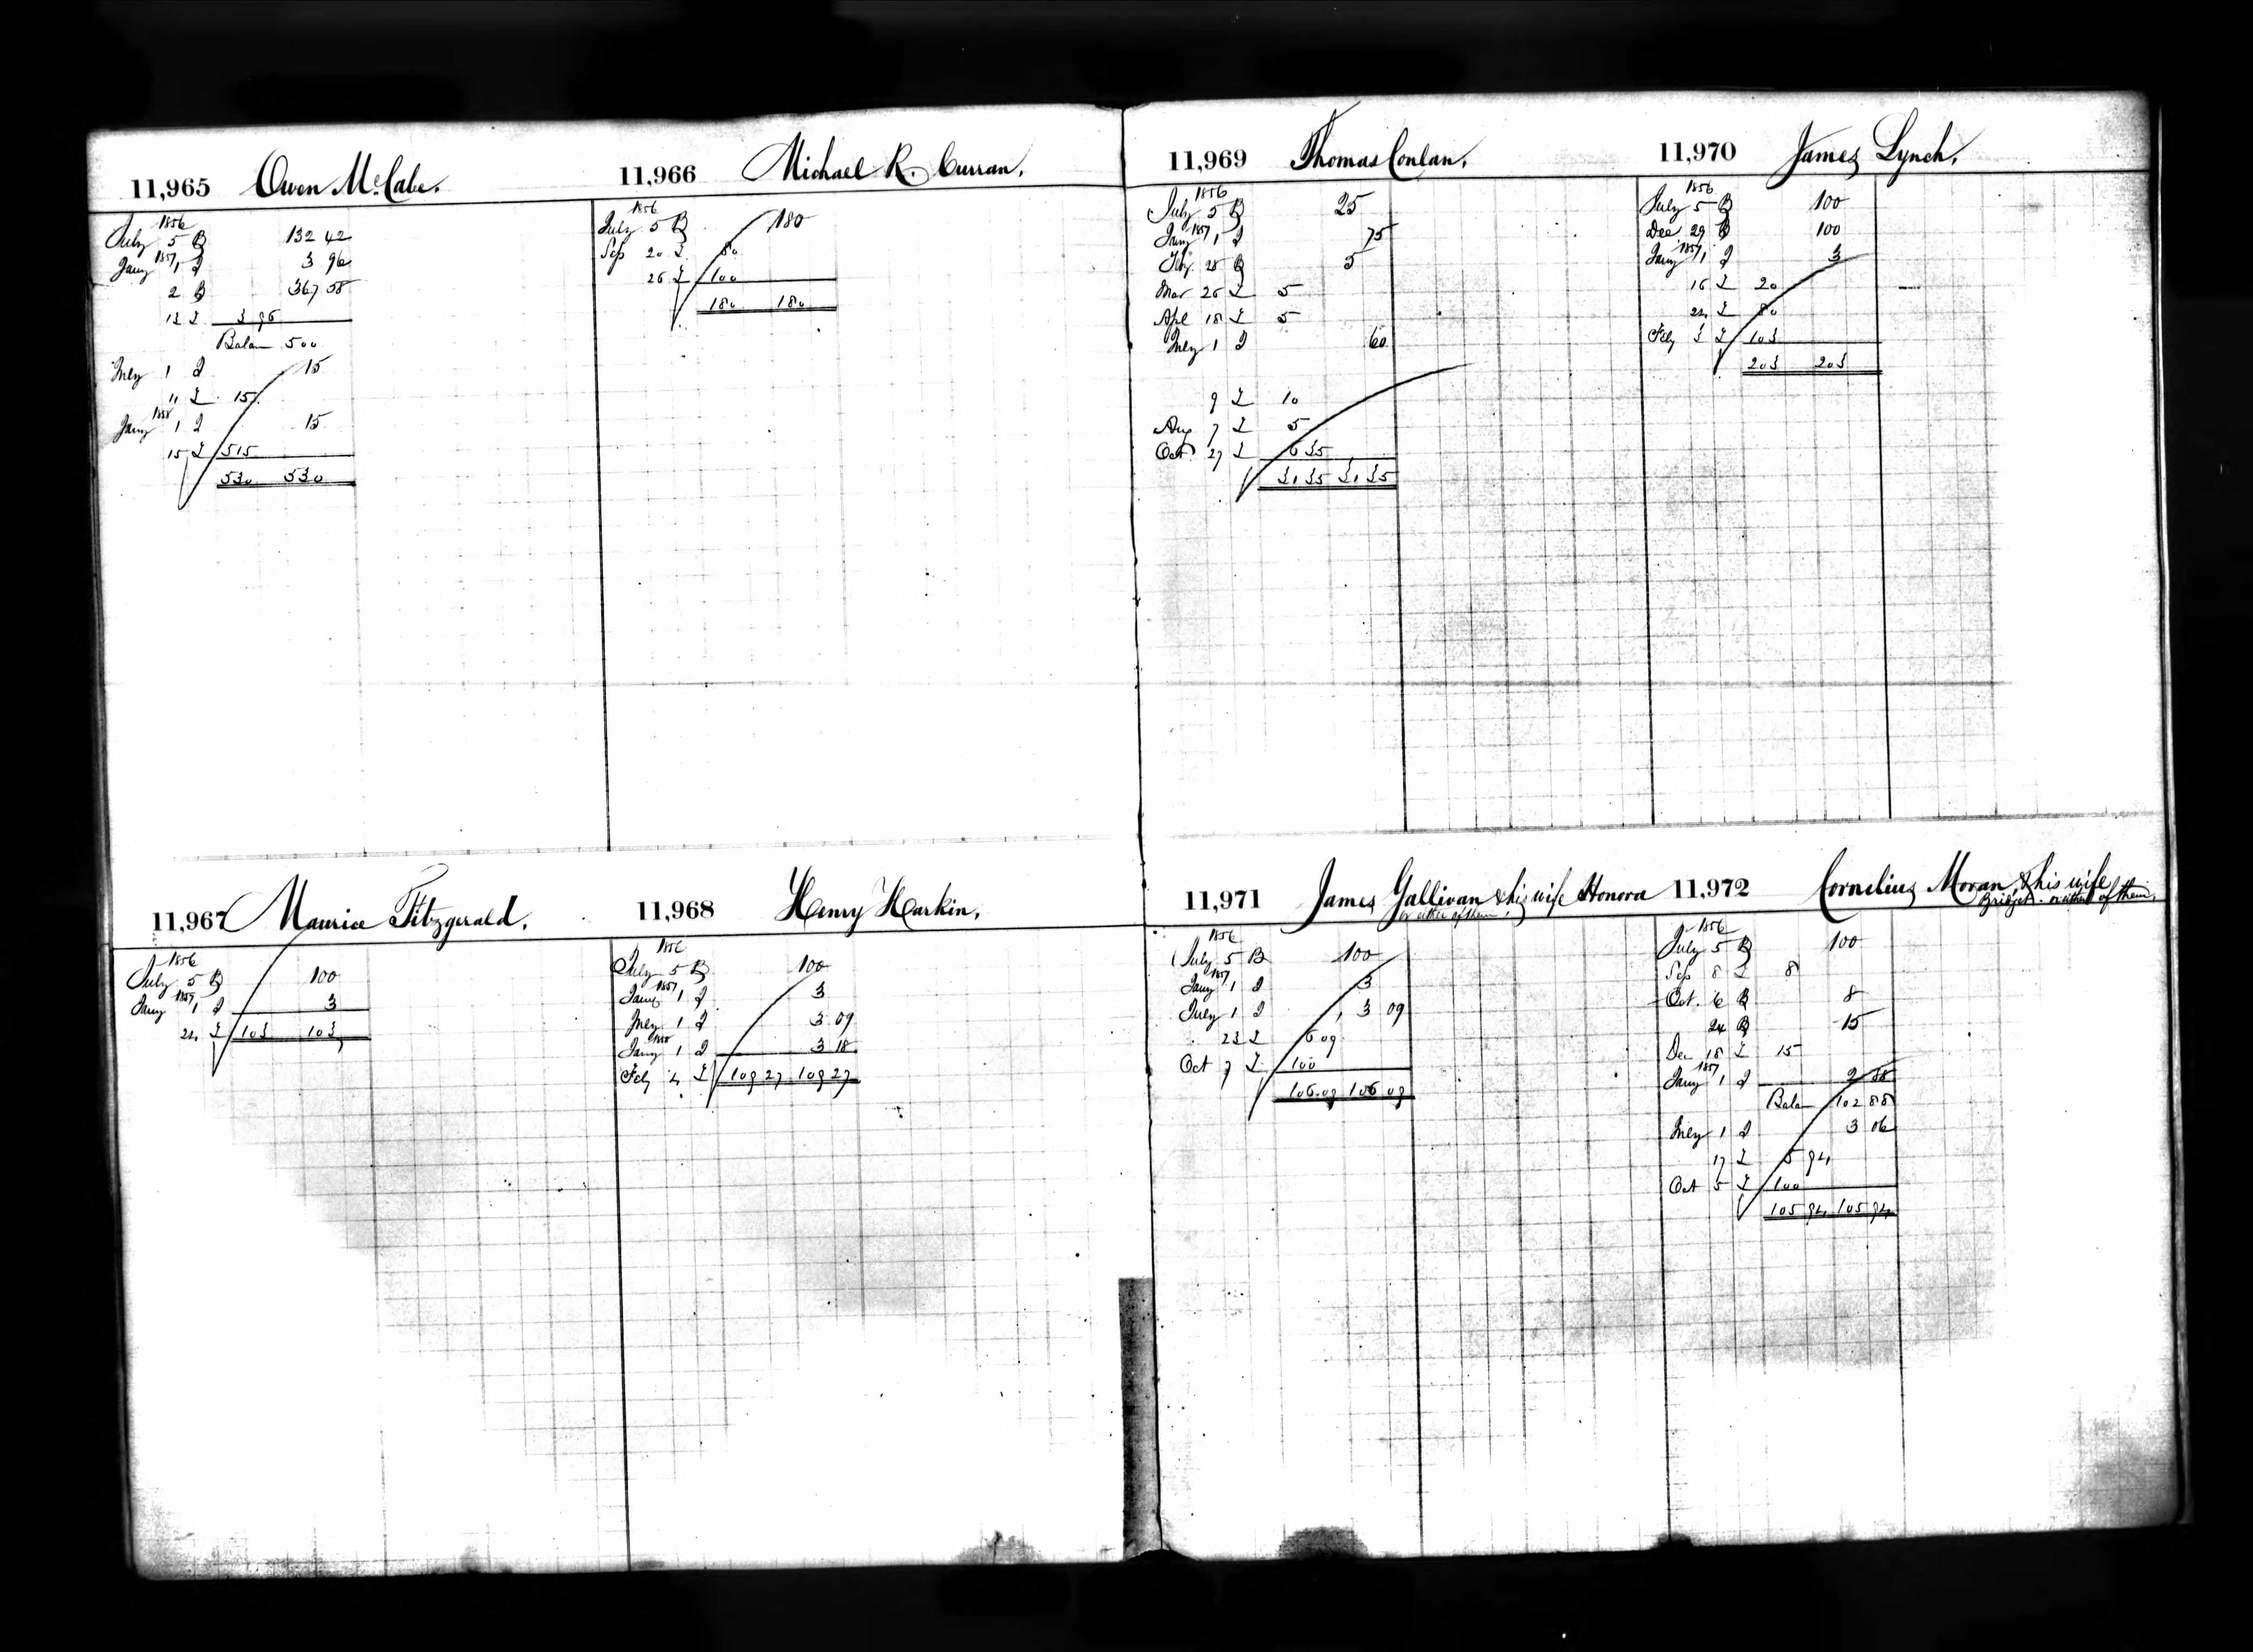 11,965 Owen McCabe.
1856
July 5 B 132 42
Jany 1857 1 I 3 96
2 B 367 58
12 I 3 96
Balan 500
July 1 I 15
11 I 15
Jany 1858 1 I 15
15 I 515
530 530
11,966 Michael R. Curran,
1856
July 5 B 180
Sep 20 I 80
26 I 100
180 180
11,967 Maurice Fitzgerald.
1856
July 5 B 100
Jany 1857 1 I 3
24 I 103 103
11,968 Henry Harkin,
1856
July 5 B 100
Jany 1857 1 I 3
July 1 I 3 09
Jany 1858 1 I 3 18
Feby 4 I 109 27 109 27
11,969 Thomas Conlan,
1856
July 5 B 25
Jany 1857 1 I 75
Feby 28 B 5
Mar 26 I 5
Apl 18 I 5
July 1 I 60
9 I 10
Aug 7 I 5
Oct 27 I 6 35
31 35 31 35
11,970 James Lynch,
1856
July 5 B 100
Dec 29 B 100
Jany 1857 1 I 3
16 I 20
22 I 80
Feby 3 I 103
203 203
11,971 James Gallivan & his wife Honora
or either of them,
1856
July 5 B 100
Jany 1857 1 I 3
July 1 I 3 09
23 I 6 09
Oct 7 I 100
106.09 106 09
11,972 Cornelius Moran, & his wife
Bridget. or either of them,
1856
July 5 B 100
Sep 8 I 8
Oct. 6 B 8
24 B 15
Dec 18 I 15
Jany 1857 1 I 2 88
Balan 102 88
July 1 I 3 06
17 I 5 94
Oct 5 I 100
105 94 105 94